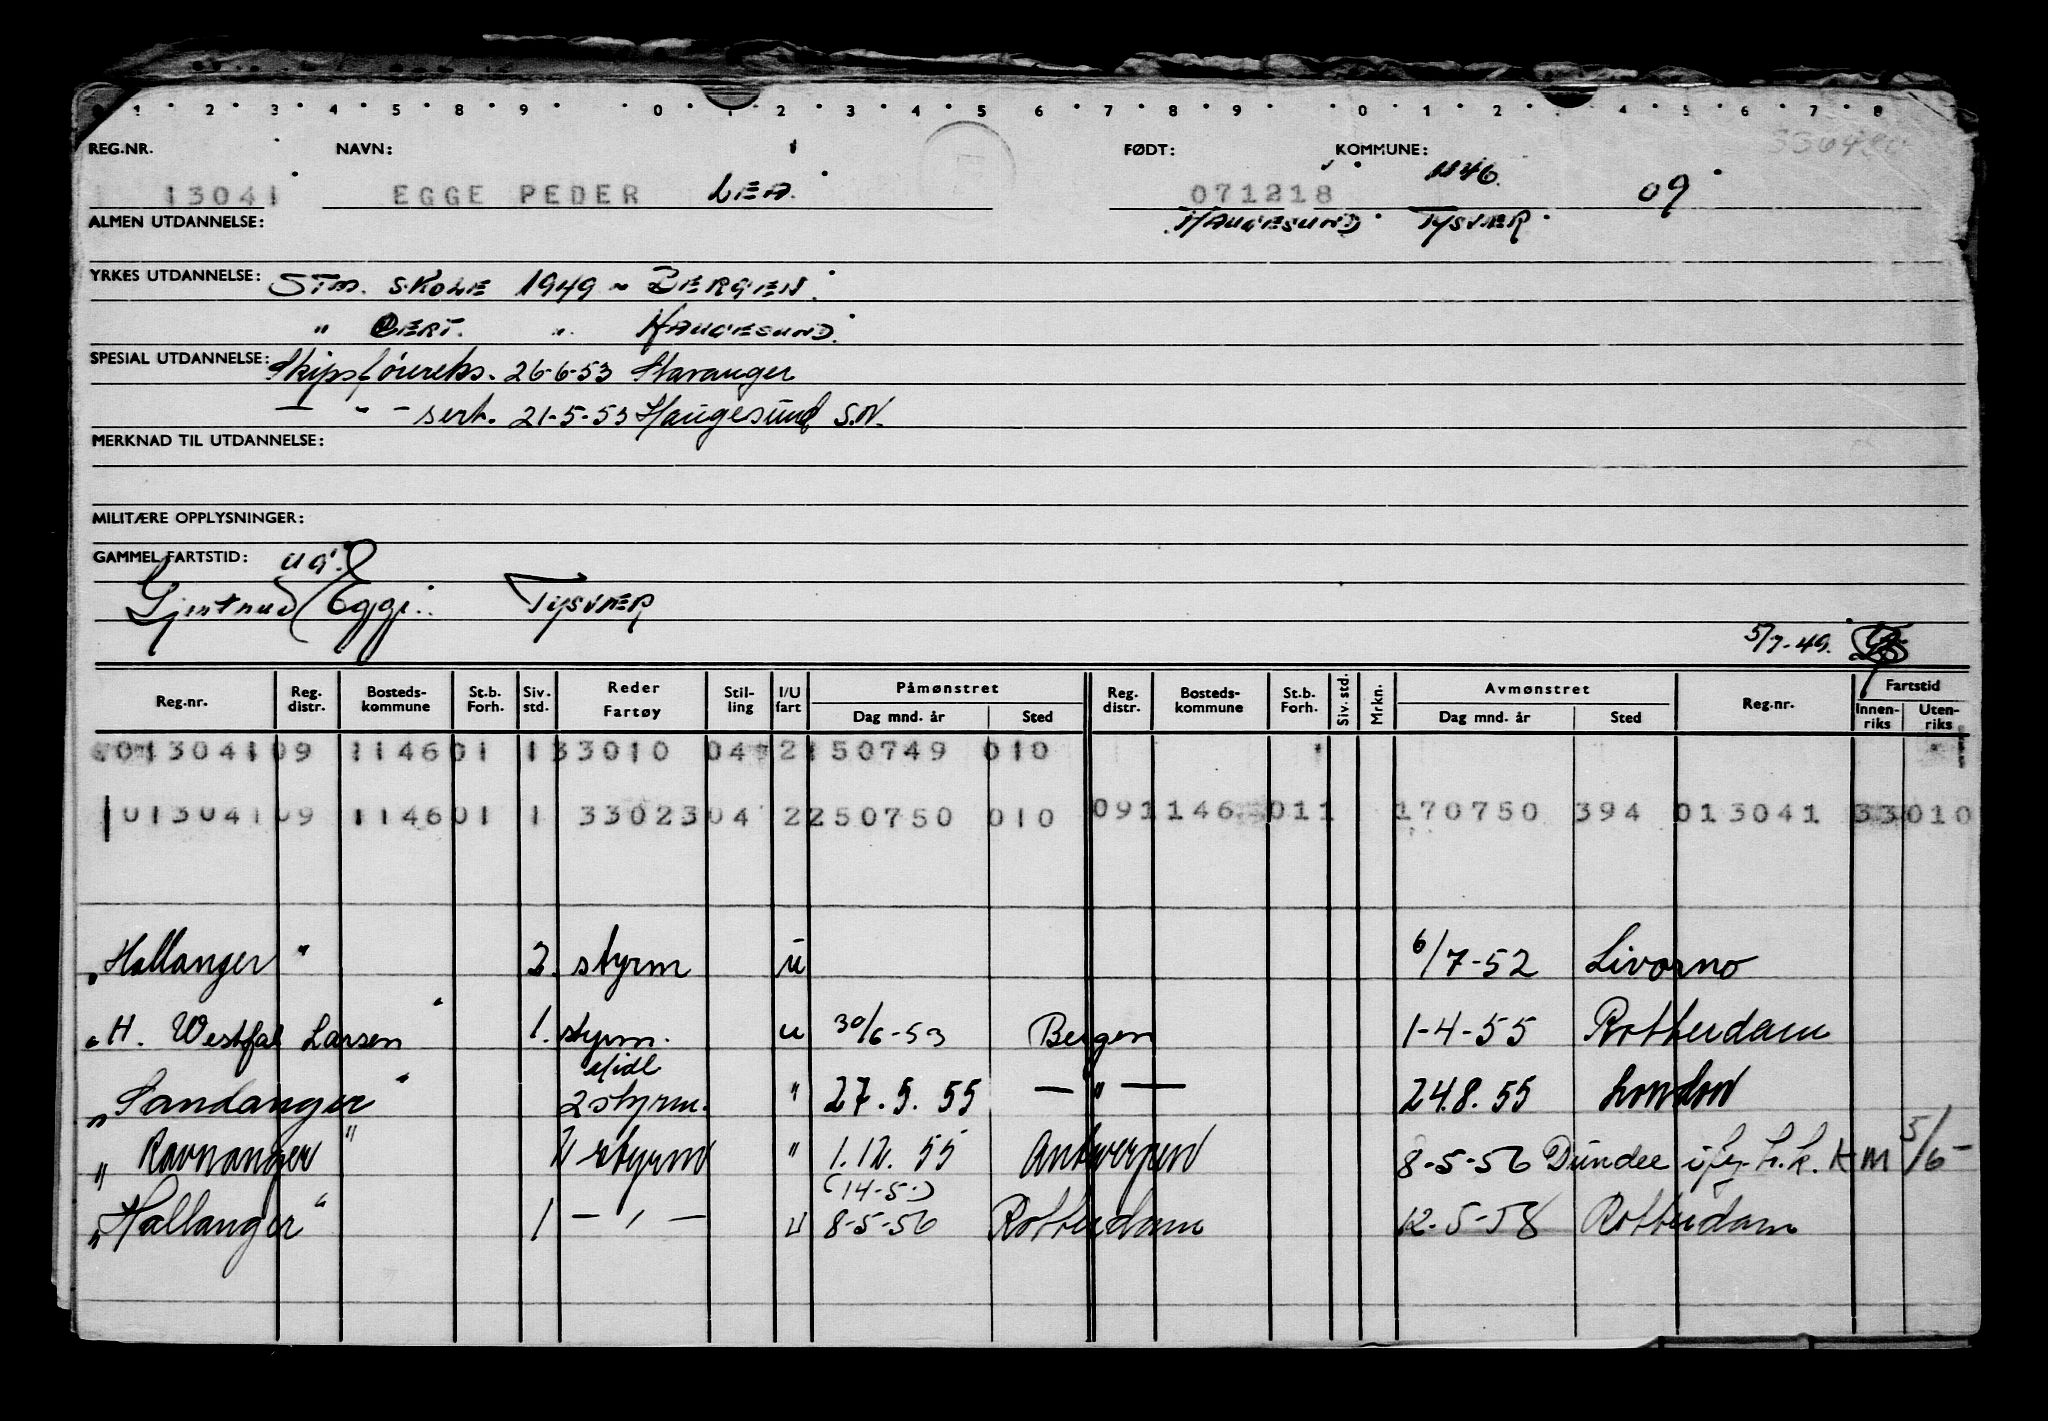 1 2 3 4 5 8 9 0 1 2 3 4 5 6 7 8 9 0 1 2 4 5 6 7 8
REG.NR. NAVN: FØDT: KOMMUNE:
1146.
13041 EGGE PEDER LEA. 071218 09
ALMEN UTDANNELSE: HAUGESUND TYSVÆR.
YRKES UTDANNELSE: STM. SKOLE 1949 ~ BERGEN.
" CERT. " HAUGESUND.
SPESIAL UTDANNELSE: Skipsførereks. 26-6-53 Stavanger
— " - sert. 21-5-53 Haugesund S.N.
MERKNAD TIL UTDANNELSE:
MILITÆRE OPPLYSNINGER:
GAMMEL FARTSTID: ug.
Gjertrud Egge. TYSVÆR
5/7-49.
Reg.nr. Reg. distr. Bosteds-kommune St.b. Forh. Siv. std. Reder Fartøy Stil-ling I/U fart Påmønstret Dag mnd. år Sted Reg. distr. Bosteds-kommune St.b. Forh. Siv. std. Mrkn. Avmønstret Dag mnd. år Sted Reg.nr. Fartstid Innen-riks Uten-riks
013041 09 1146 01 1 33010 04 2 150749 010
013041 09 1146 01 1 33023 04 2 250750 010 09 1146 01 1 170750 394 013041 33010
"Hallanger" 2. styrm u 6/7-52 Livorno
"H. Westfal Larsen" 1. styrm. u 30/6-53 Bergen 1-4-55 Rotterdam
midl
"Sandanger" 2 styrm. " 27.5.55 — " — 24.8.55 London
"Ravnanger" styrm " 1.12.55 Antwerpen 8-5-56 Dundee
(14-5-)
"Hallanger" 1 — " — u 8-5-56 Rotterdam 12-5-58 Rotterdam